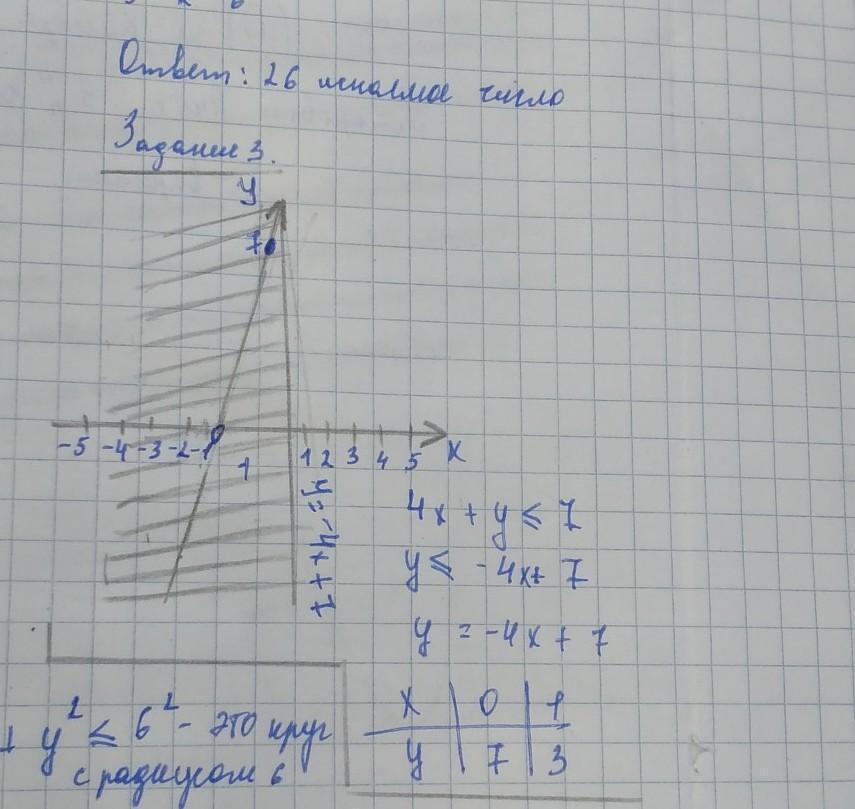 Ответ: 26 искомое число
Задание 3.
y
7
-5 -4 -3 -2 -1 1 2 3 4 5 x
1
y=-4x+7
4x + y ≤ 7
y ≤ -4x+ 7
y = -4x + 7
x 0 1
y 7 3
+ y² ≤ 6² - это круг
с радиусом 6